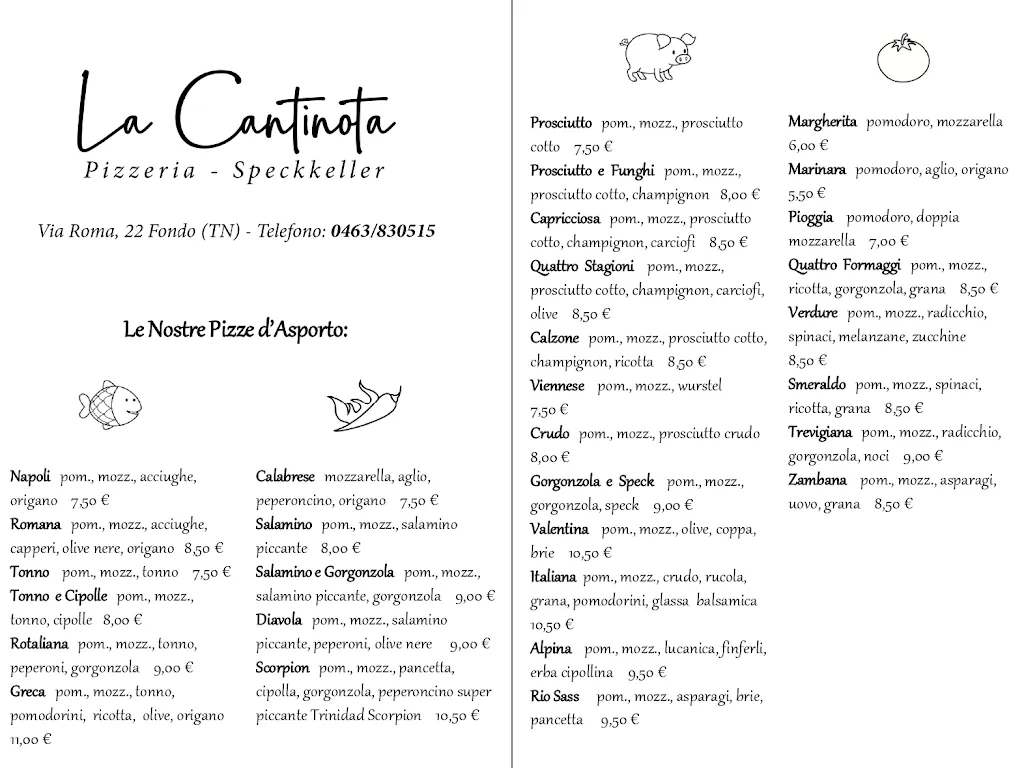 La Cantinota
Pizzeria - Speckkeller
Via Roma, 22 Fondo (TN) - Telefono: 0463/830515
Le Nostre Pizze d'Asporto:
Napoli pom., mozz., acciughe,
origano 7,50 €
Romana pom., mozz., acciughe,
capperi, olive nere, origano 8,50 €
Tonno pom., mozz., tonno 7,50 €
Tonno e Cipolle pom., mozz.,
tonno, cipolle 8,00 €
Rotaliana pom., mozz., tonno,
peperoni, gorgonzola 9,00 €
Greca pom., mozz., tonno,
pomodorini, ricotta, olive, origano
11,00 €
Calabrese mozzarella, aglio,
peperoncino, origano 7,50 €
Salamino pom., mozz., salamino
piccante 8,00 €
Salamino e Gorgonzola pom., mozz.,
salamino piccante, gorgonzola 9,00 €
Diavola pom., mozz., salamino
piccante, peperoni, olive nere 9,00 €
Scorpion pom., mozz., pancetta,
cipolla, gorgonzola, peperoncino super
piccante Trinidad Scorpion 10,50 €
Prosciutto pom., mozz., prosciutto
cotto 7,50 €
Prosciutto e Funghi pom., mozz.,
prosciutto cotto, champignon 8,00 €
Capricciosa pom., mozz., prosciutto
cotto, champignon, carciofi 8,50 €
Quattro Stagioni pom., mozz.,
prosciutto cotto, champignon, carciofi,
olive 8,50 €
Calzone pom., mozz., prosciutto cotto,
champignon, ricotta 8,50 €
Viennese pom., mozz., wurstel
7,50 €
Crudo pom., mozz., prosciutto crudo
8,00 €
Gorgonzola e Speck pom., mozz.,
gorgonzola, speck 9,00 €
Valentina pom., mozz., olive, coppa,
brie 10,50 €
Italiana pom., mozz., crudo, rucola,
grana, pomodorini, glassa balsamica
10,50 €
Alpina pom., mozz., lucanica, finferli,
erba cipollina 9,50 €
Rio Sass pom., mozz., asparagi, brie,
pancetta 9,50 €
Margherita pomodoro, mozzarella
6,00 €
Marinara pomodoro, aglio, origano
5,50 €
Pioggia pomodoro, doppia
mozzarella 7,00 €
Quattro Formaggi pom., mozz.,
ricotta, gorgonzola, grana 8,50 €
Verdure pom., mozz., radicchio,
spinaci, melanzane, zucchine
8,50 €
Smeraldo pom., mozz., spinaci,
ricotta, grana 8,50 €
Trevigiana pom., mozz., radicchio,
gorgonzola, noci 9,00 €
Zambana pom., mozz., asparagi,
uovo, grana 8,50 €